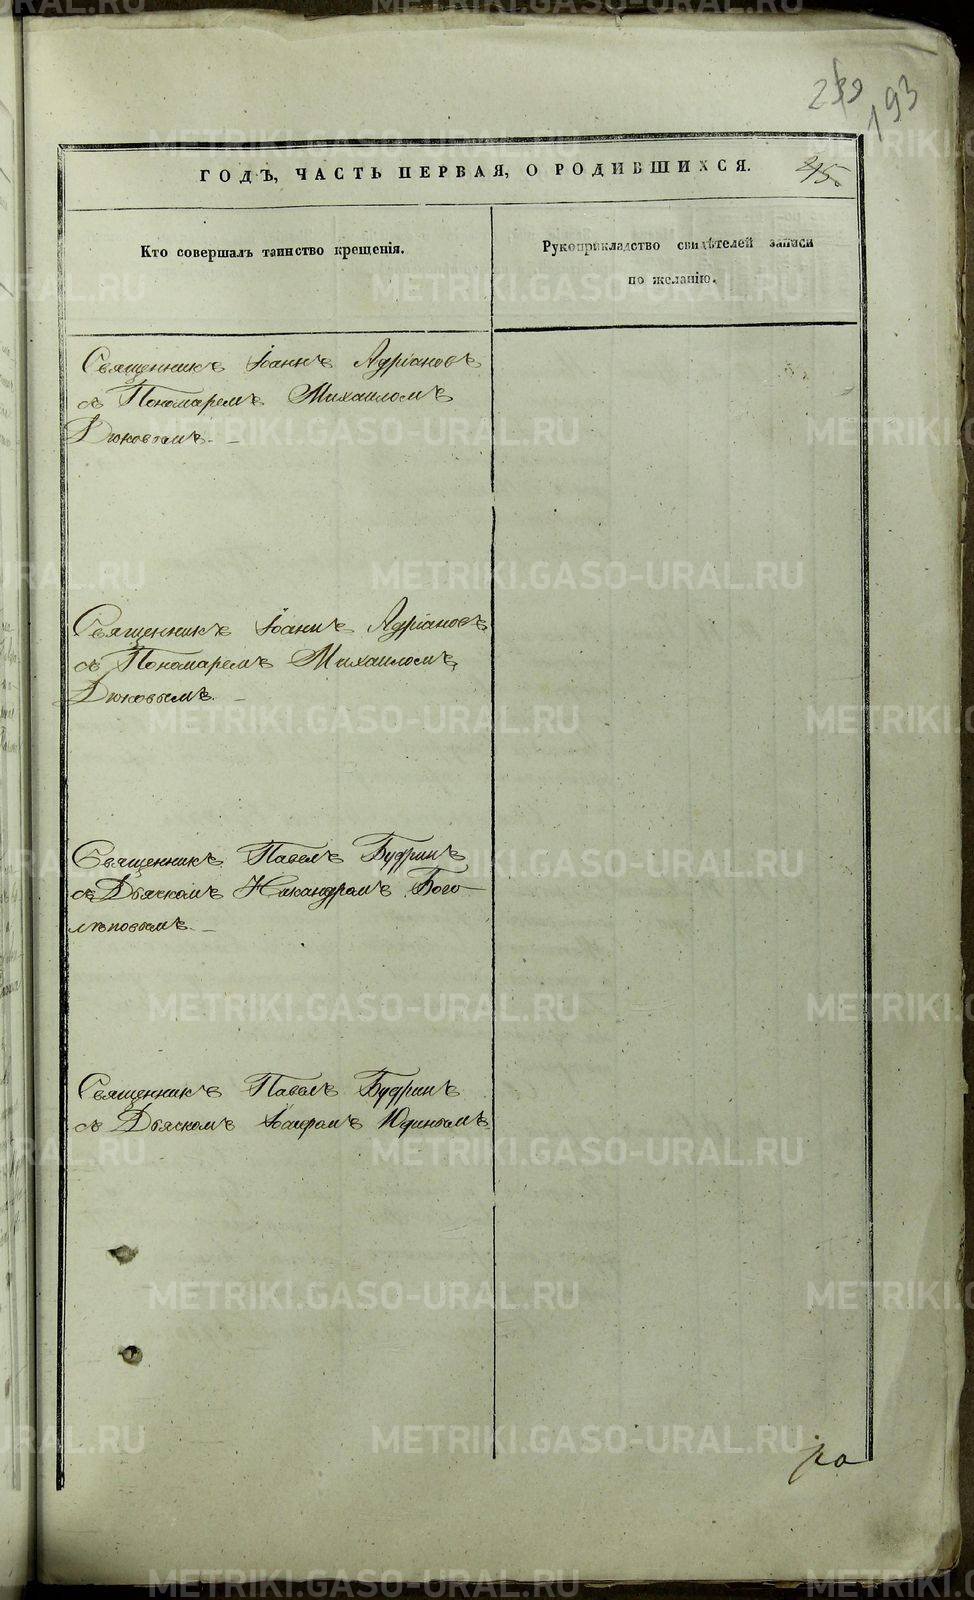 193
ГОДЪ, ЧАСТЬ ПЕРВАЯ, О РОДИВШИХСЯ.
215.
Кто совершалъ таинство крещенія.
Рукоприкладство свидѣтелей записи
по желанію.
Священникъ Іоаннъ Адріановъ
съ Пономаремъ Михаиломъ
Дюковымъ.
Священникъ Іоаннъ Адріановъ
съ Пономаремъ Михаиломъ
Дюковымъ.
Священникъ Павелъ Будринъ
съ Дьячкомъ Никандромъ Бого-
лѣповымъ.
Священникъ Павелъ Будринъ
съ Дьячкомъ Іаиромъ Юдинымъ
METRIKI.GASO-URAL.RU